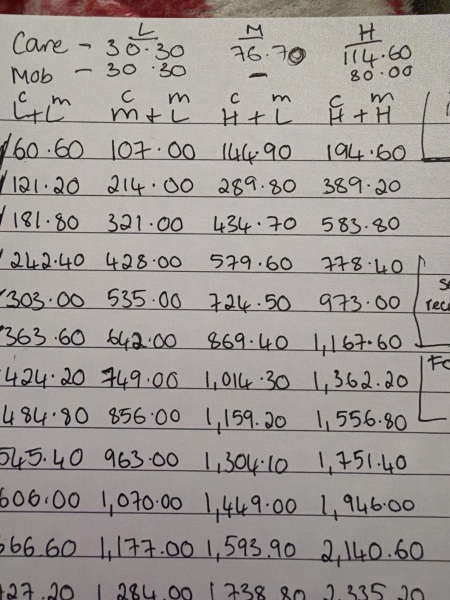 L M H
Care - 30.30 76.70 114.60
Mob - 30.30 - 80.00
c m c m c m c m
L+L m+L H+L H+H
60.60 107.00 144.90 194.60
121.20 214.00 289.80 389.20
181.80 321.00 434.70 583.80
242.40 428.00 579.60 778.40
303.00 535.00 724.50 973.00
363.60 642.00 869.40 1,167.60
424.20 749.00 1,014.30 1,362.20
484.80 856.00 1,159.20 1,556.80
545.40 963.00 1,304.10 1,751.40
606.00 1,070.00 1,449.00 1,946.00
666.60 1,177.00 1,593.90 2,140.60
727.20 1,284.00 1,738.80 2,335.20